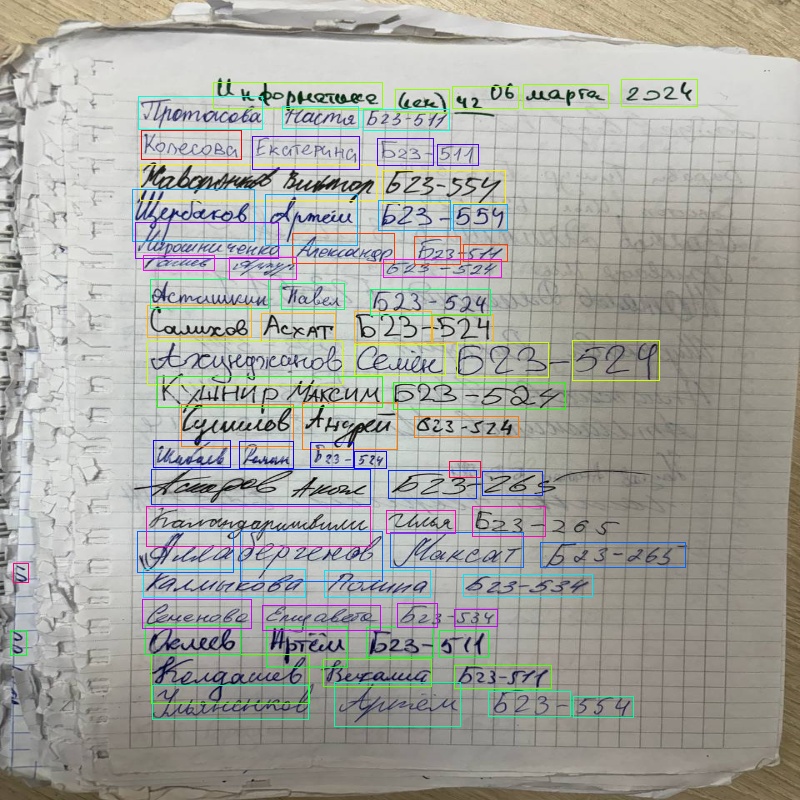 Информатика (лек) 42 06 марта 2024
Протасова Настя Б23-511
Колесова Екатерина Б23-511
Жаворонков Виктор Б23-554
Щербаков Артём Б23-554
Мирошниченко Александр Б23-511
Б23-524
Асташкин Павел Б23-524
Салихов Асхат Б23-524
Ахунджанов Семён Б23-524
Кушнир Максим Б23-524
Сушилов Андрей Б23-524
Роман Б23-524
Аскаров Акмал Б23-265
Каландаришвили Илья Б23-265
Аллабергенов Максат Б23-265
Калмыкова Полина Б23-534
Семенова Елизавета Б23-534
Оклеев Артём Б23-511
Колдашев Б23-511
Ульяненков Артём Б23-554